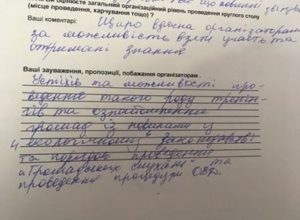 загальної організації
проведення круглого столу
(місце проведення, харчування тощо) ?
Ваші коментарі: Щиро вдячна організаторам
за можливість взяти участь та
отримані знання
Ваші зауваження, пропозиції, побажання організаторам .
Успіхів та можливості про-
ведення такого роду тренін-
гів та ознайомлення
з новими у
екологічному законодавстві
та порядок проведення
"Громадських слухань" та
проведення процедури ОВД.